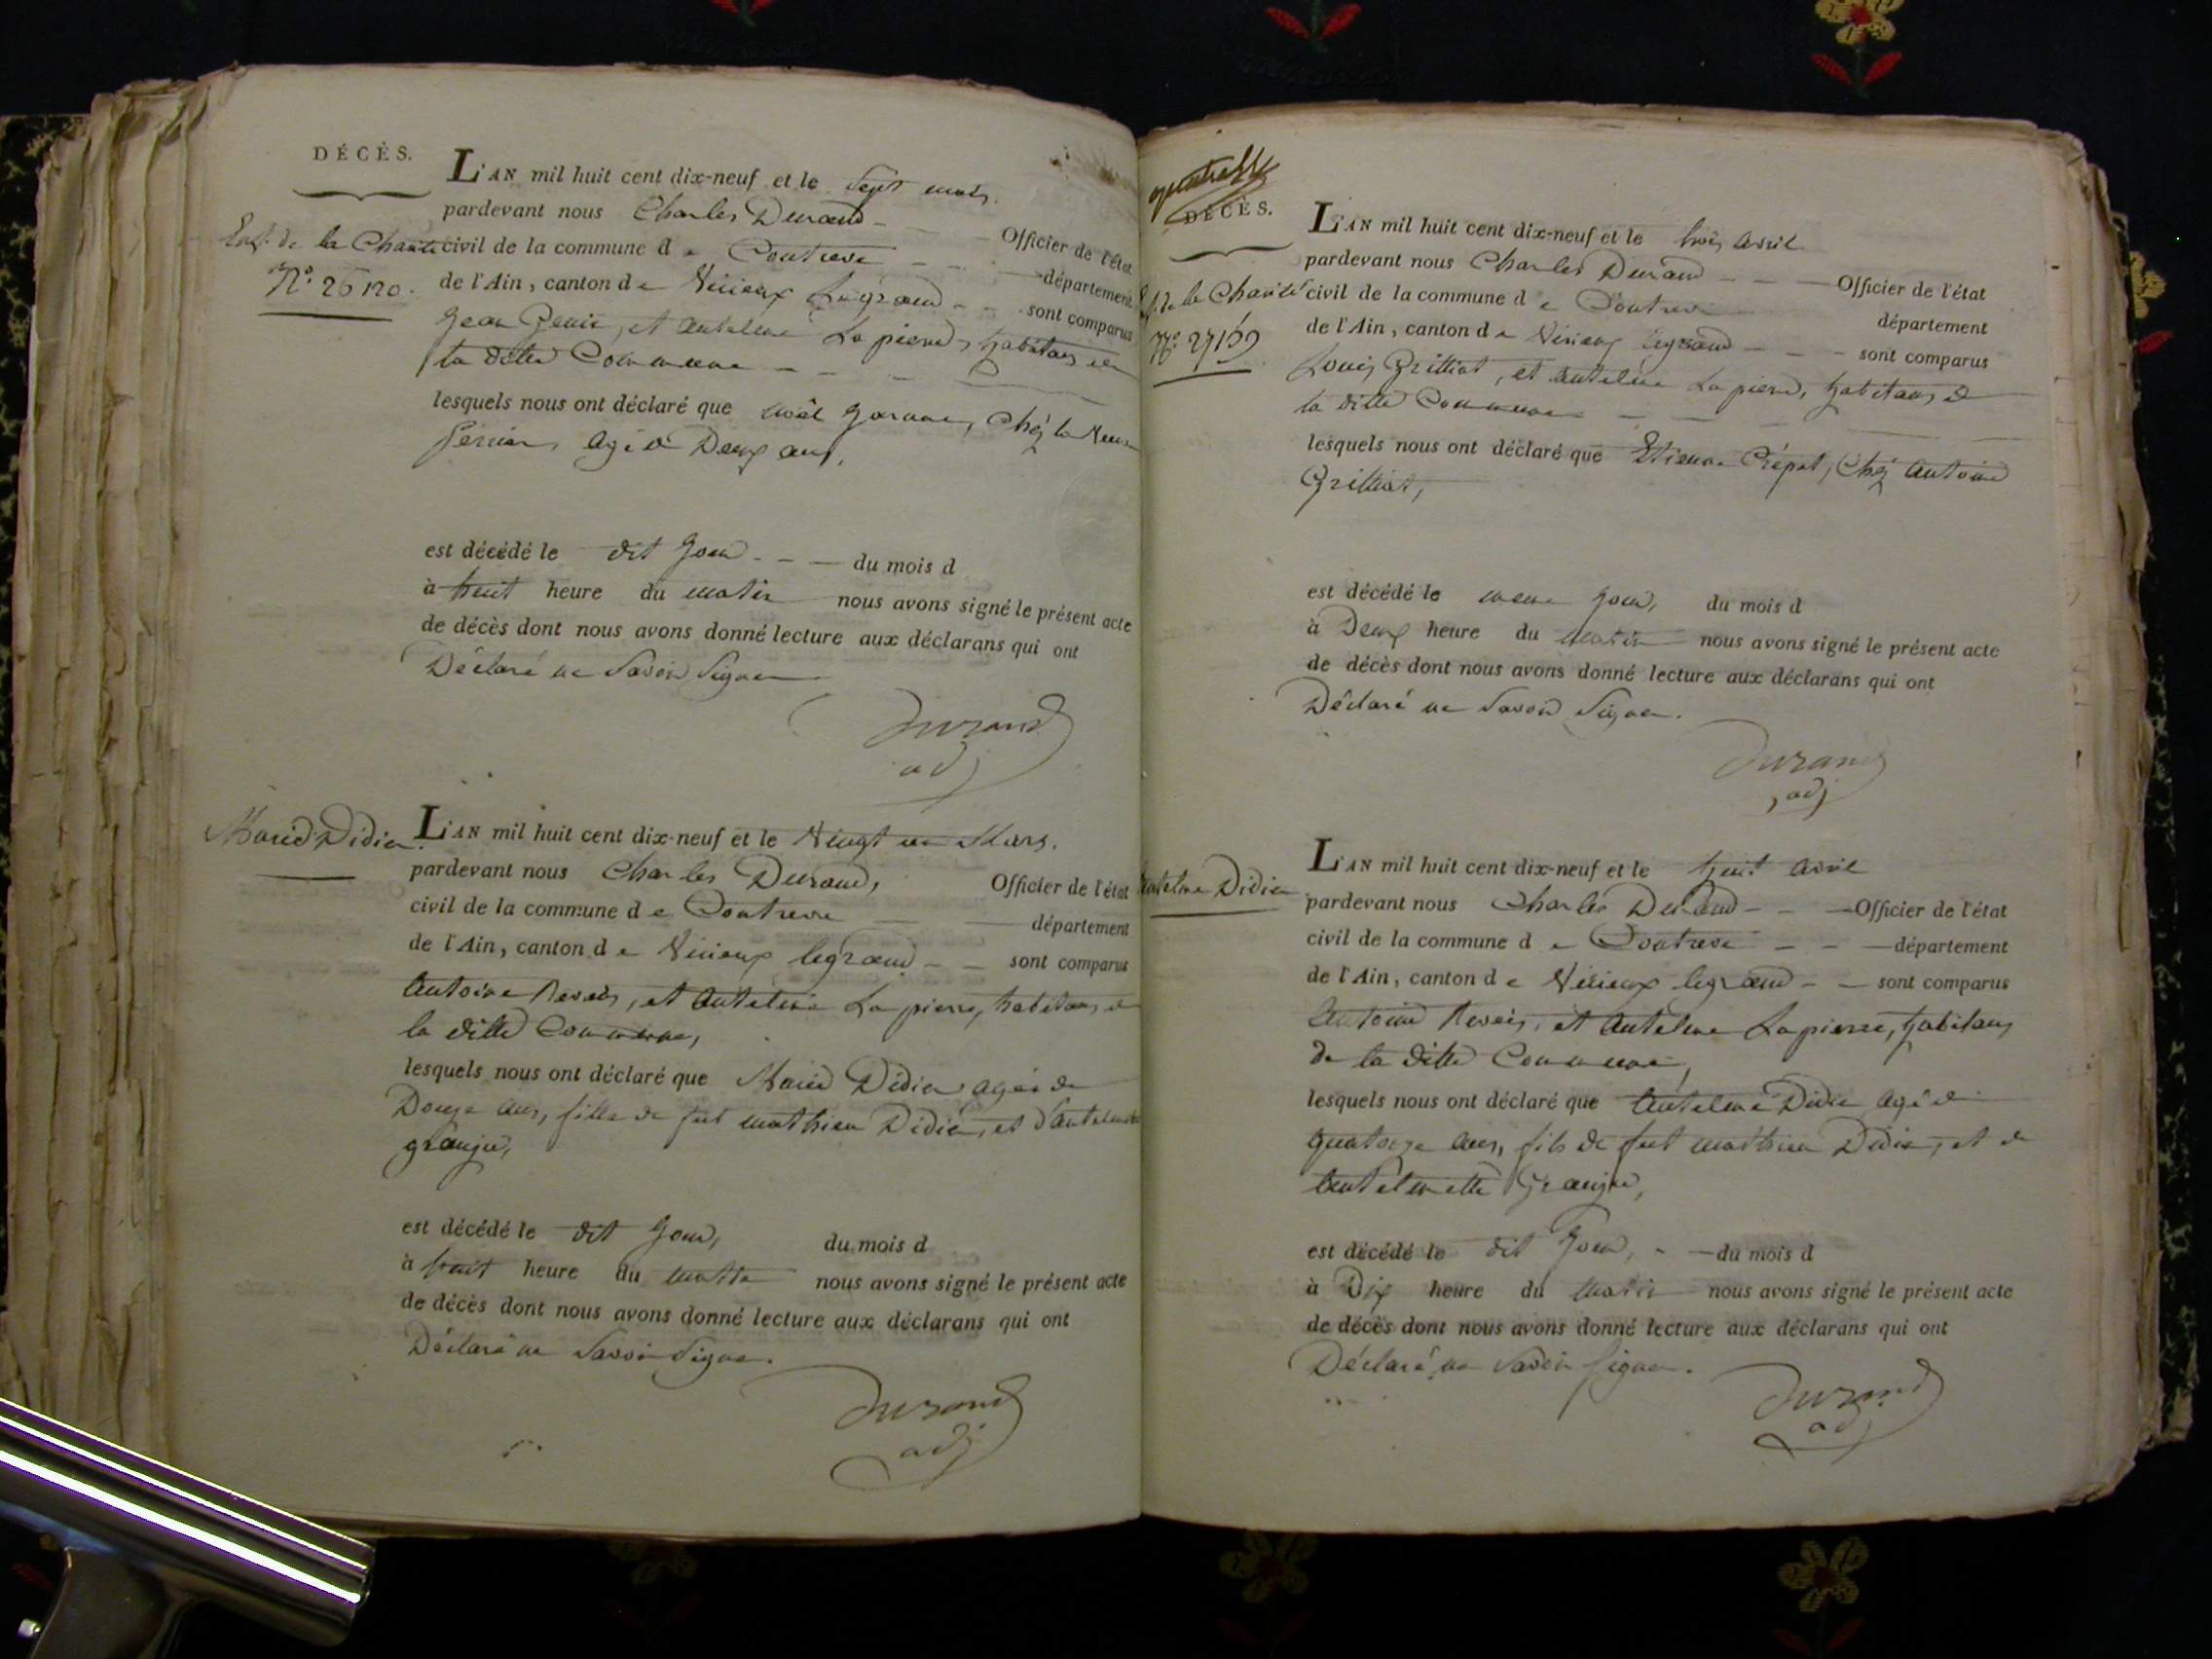 DÉCÈS.
L'AN mil huit cent dix-neuf et le Sept mars.
pardevant nous Charles Durand - Officier de l'état
Enf. de la Charité civil de la commune d e Contrevoz département
N.º 26120. de l'Ain, canton d e Virieux legrand - sont comparus
Jean et Antelme La pierre, habitans de
la ditte Commune
lesquels nous ont déclaré que noël chéz la Veuve
agé de Deux ans,
est décédé le dit Jour - - du mois d
à huit heure du matin nous avons signé le présent acte
de décès dont nous avons donné lecture aux déclarans qui ont
Déclaré ne Savoir Signer
Durand
adj
Marie Didier
L'AN mil huit cent dix-neuf et le Vingt un Mars.
pardevant nous Charles Durand, Officier de l'état
civil de la commune d e Contrevoz département
de l'Ain, canton d e Virieux legrand - - sont comparus
Antoine et Antelme La pierre, habitans de
la ditte Commune,
lesquels nous ont déclaré que Marie Didier agée de
Douze ans, fille de fut mathieu Didier, et d'antelmette
granjer,
est décédé le dit Jour, du mois d
à huit heure du matin nous avons signé le présent acte
de décès dont nous avons donné lecture aux déclarans qui ont
Déclaré ne Savoir Signer.
Durand
adj
DÉCÈS.
L'AN mil huit cent dix-neuf et le trois avril
pardevant nous Charles Durand - - Officier de l'état
Enf. de la Charité civil de la commune d e Contrevoz département
N.º 27139 de l'Ain, canton d e Virieux legrand - - - sont comparus
Louis Grilliat, et antelme La pierre, habitans de
la ditte Commune
lesquels nous ont déclaré que Etienne Crépat, Chéz Antoine
Grilliat,
est décédé le meme jour, du mois d
à Deux heure du matin nous avons signé le présent acte
de décès dont nous avons donné lecture aux déclarans qui ont
Déclaré ne Savoir Signer.
Durand
adj
Antelme Didier
L'AN mil huit cent dix-neuf et le huit avril
pardevant nous Charles Durand - - Officier de l'état
civil de la commune d e Contrevoz - - département
de l'Ain, canton d e Virieux legrand - - sont comparus
Antoine et Antelme Lapierre, habitans
de la ditte Commune,
lesquels nous ont déclaré que Antelme Didier agé de
quatorze ans, fils de fut mathieu Didier, et de
antelmette Granjer,
est décédé le dit Jour, - - du mois d
à Dix heure du matin nous avons signé le présent acte
de décès dont nous avons donné lecture aux déclarans qui ont
Déclaré ne Savoir Signer.
Durand
adj